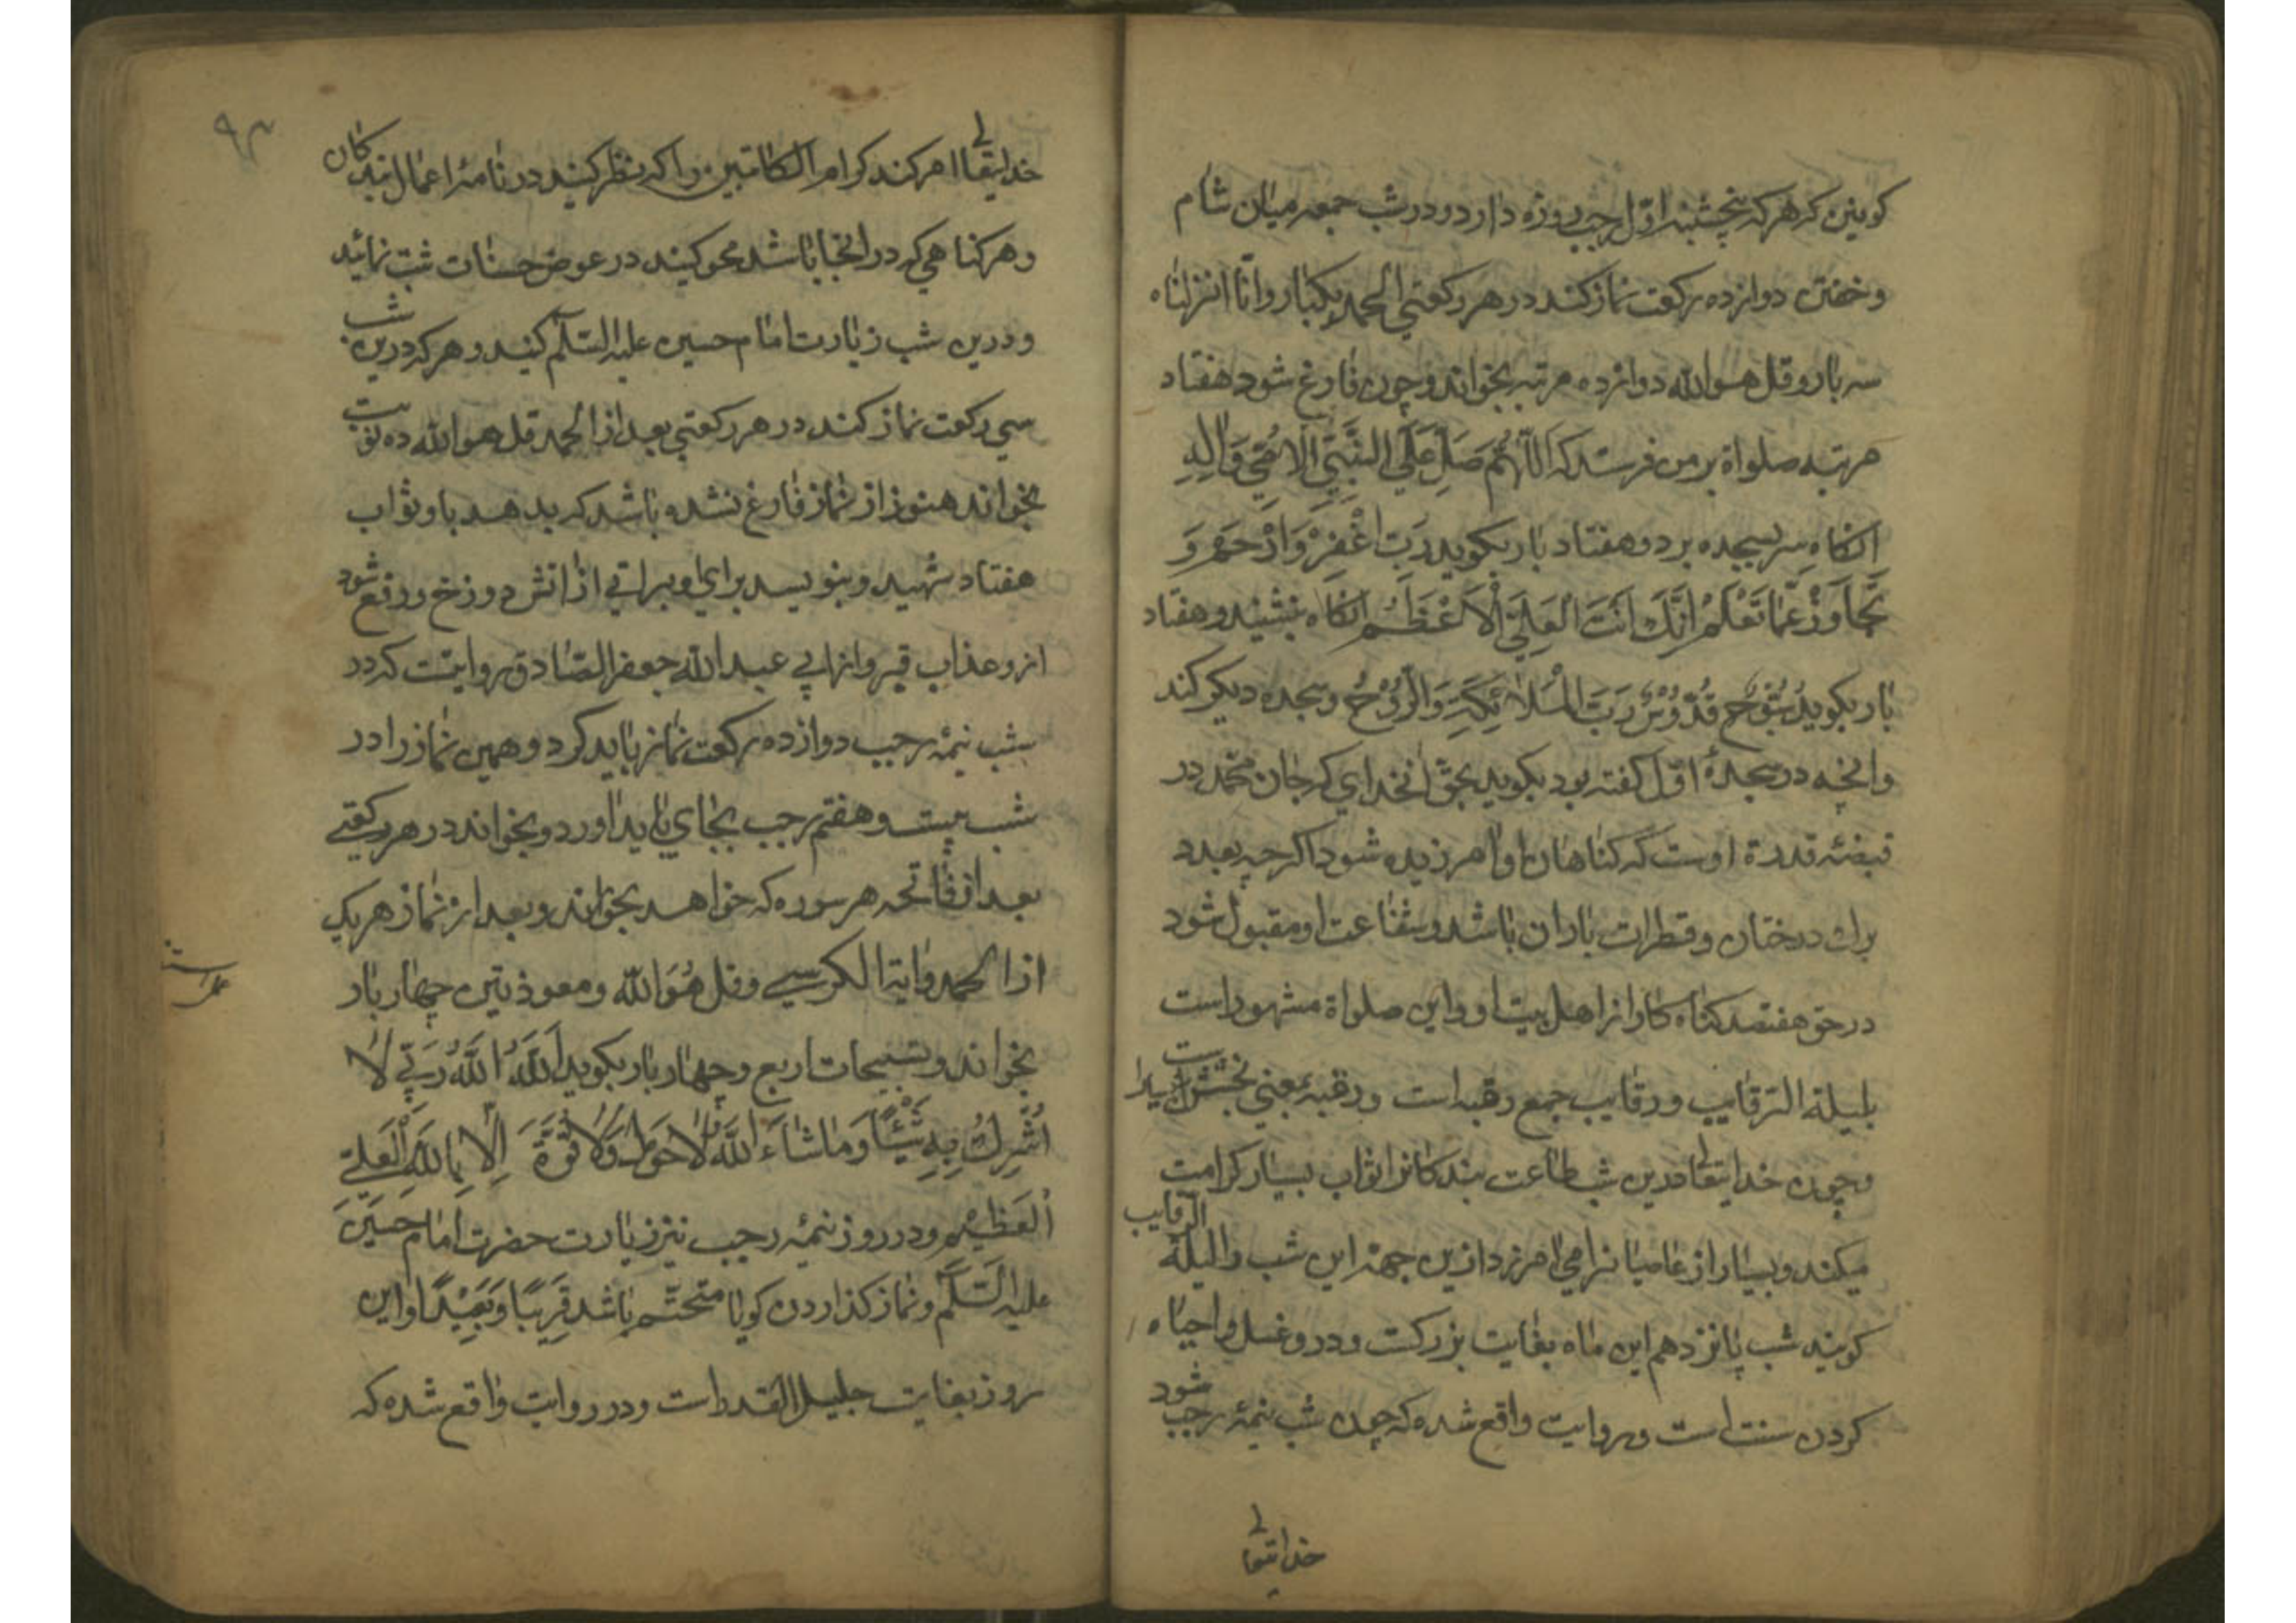 كوینین كه هركه پنجشنبه اوّل رجب روزه دارد و در شب جمعه میان شام
و خفتن دوازده ركعت نماز كند در هر ركعتی الحمد یكبار و انّا انزلناه
سه بار و قل هو الله دوازده مرتبه بخواند و چون فارغ شود هفتاد
مرتبه صلواة بر من فرستد كه اَللّٰهُمَّ صَلِّ عَلَی النَّبِیِّ الْاُمِّیِّ وَ اٰلِهِ
انكاه سر بسجده برد و هفتاد بار بكوید رَبِّ اغْفِرْ وَ ارْحَمْ وَ
تَجٰاوَزْ عَمّٰا تَعْلَمُ اِنَّكَ اَنْتَ الْعَلِیُّ الْاَعْظَمُ انكاه بنشیند و هفتاد
بار بكوید سُبُّوحٌ قُدُّوْسٌ رَبُّ الْمَلاٰئِكَةِ وَ الرُّوْحِ و سجده دیكر كند
و انچه در سجدهٔ اوّل كفته بود بكوید بحق انخدای كه جان محمّد در
قبضهٔ قدرة اوست كه كناهان او امرزیده شود اكرچه بعدد
برك درختان و قطرات باران باشد و شفاعت او مقبول شود
در حق هفتصد كناه كار از اهل بیت او و این صلواة مشهور است
بلیلة الرقایب و رقایب جمع رقبه است و رقبه بمعنی بخشش بسیار است
و چون خدایتعالی درین شب طاعت بندكانرا ثواب بسیار كرامت
میكند و بسیار از عاصیانرا می امرزد ازین جهة این شب را لیلة الرقایب
كویند شب پانزدهم این ماه بغایت بزركست و درو غسل و احیاء
كردن سنت است و بروایت واقع شده كه چون شب نیمهٔ رجب شود
خدایتعالی
٩٣
خدایتعالی امر كند كرام الكاتبین را كه نظر كنید در نامهٔ اعمال بندكان
و هر كناهی كه در انجا باشد محو كنید در عوض حسنات ثبت نمائید
و درین شب زیارت امام حسین علیه السّلٰم كنید و هركه درین شب
سی ركعت نماز كند در هر ركعتی بعد از الحمد قل هو الله ده نوبت
بخواند هنوز از نماز فارغ نشده باشد كه بدهد باو ثواب
هفتاد شهید و بنویسد برای او براتی از اتش دوزخ و رفع شود
ازو عذاب قبر و از ابی عبد الله جعفر الصّادق روایتست كه در
شب نیمهٔ رجب دوازده ركعت نماز باید كرد و همین نماز را در
شب بیست و هفتم رجب بجای باید اورد و بخواند در هر ركعتی
بعد از فاتحه هر سوره كه خواهد بخواند و بعد از نماز هر یك
از الحمد و ایة الكرسی و قل هُوَ اللّٰه و معوذتین چهار بار
بخواند و تسبیحات اربع و چهار بار بكوید اَللّٰهُ اَللّٰهُ رَبِّی لاٰ
اُشْرِكُ بِهِ شَیْئًا وَ مٰا شٰاءَ اللّٰهُ لاٰ حَوْلَ وَ لاٰ قُوَّةَ اِلاّٰ بِاللّٰهِ الْعَلِیِّ
الْعَظِیْمِ و در روز نیمهٔ رجب نیز زیارت حضرت امام حسین
علیه السّلٰم و نماز كذاردن كویا متحتّم باشد قَرِیبًا وَ بَعِیْدًا و این
روز بغایت جلیل القدر است و در روایت واقع شده كه